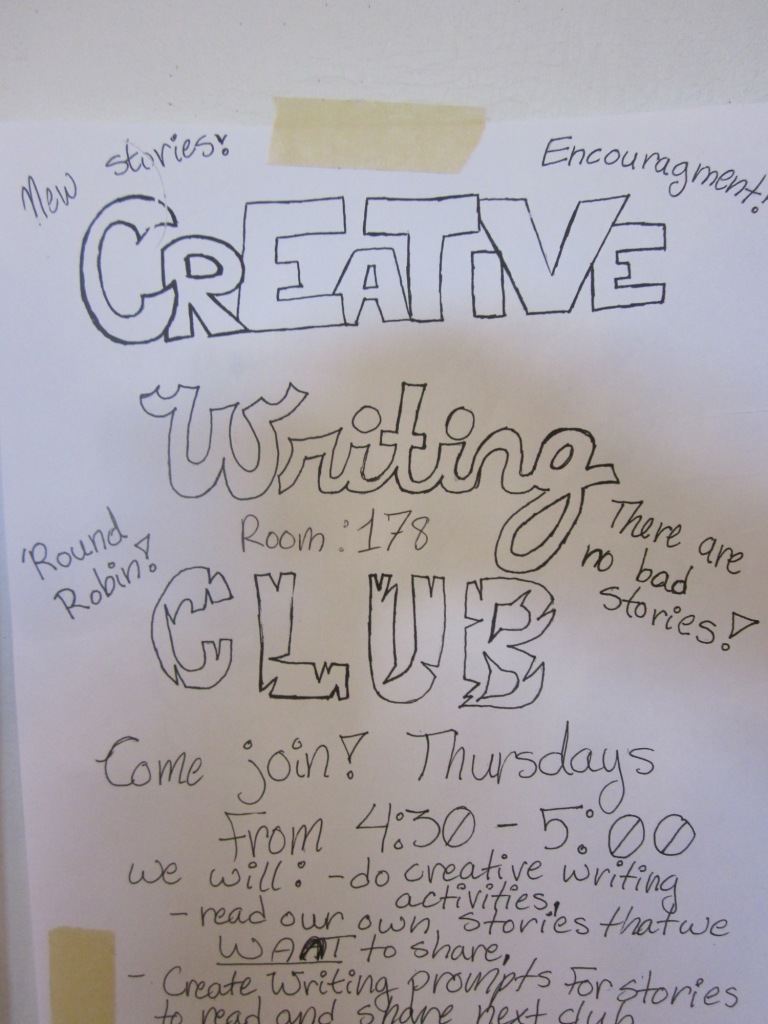 New stories!
Encouragment!
CREATiVE
Writing
Room: 178
'Round
Robin!
There are
no bad
stories!
CLUB
Come join! Thursdays
From 4:30 - 5:00
we will: - do creative writing
activities,
- read our own stories that we
WANT to share,
- Create Writing prompts for stories
to read and share next club